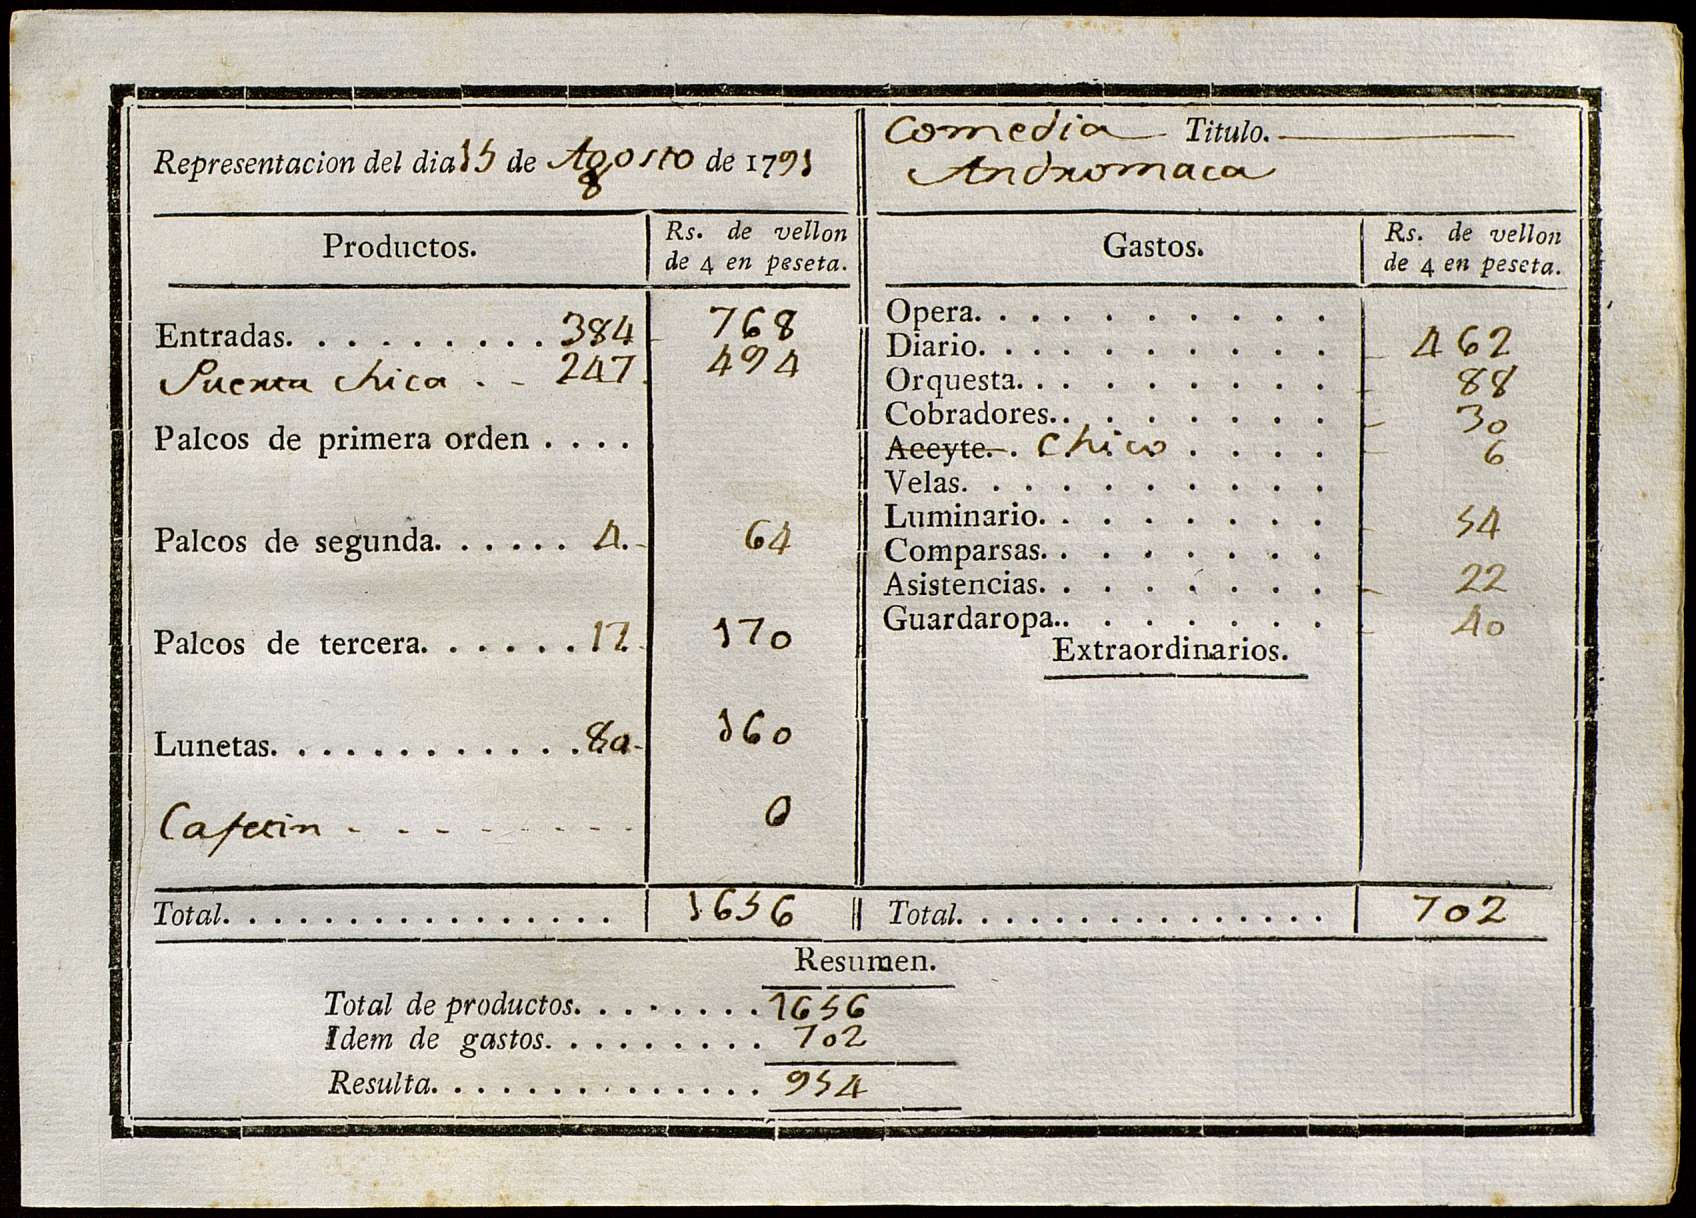 Representacion del dia 15 de Agosto de 1791
8
Comedia Titulo.
Andromaca
Productos.
Rs. de vellon
de 4 en peseta.
Entradas. . . . . . . . . . 384 768
Puerta chica . - 247 494
Palcos de primera orden . . . .
Palcos de segunda. . . . . . 4. 64
Palcos de tercera. . . . . . . 17. 170
Lunetas. . . . . . . . . . . . . 80 160
Cafetin - - - - - - - - 0
Total. . . . . . . . . . . . . . . . 1656
Gastos.
Rs. de vellon
de 4 en peseta.
Opera. . . . . . . . . .
Diario. . . . . . . . . . 462
Orquesta. . . . . . . . . 88
Cobradores. . . . . . . . 30
Aceyte. . Chico . . . . 6
Velas. . . . . . . . . .
Luminario. . . . . . . . 54
Comparsas. . . . . . . .
Asistencias. . . . . . . . 22
Guardaropa. . . . . . . . 40
Extraordinarios.
Total. . . . . . . . . . . . . . . 702
Resumen.
Total de productos. . . . . . . . 1656
Idem de gastos. . . . . . . . . 702
Resulta. . . . . . . . . . . . . . 954